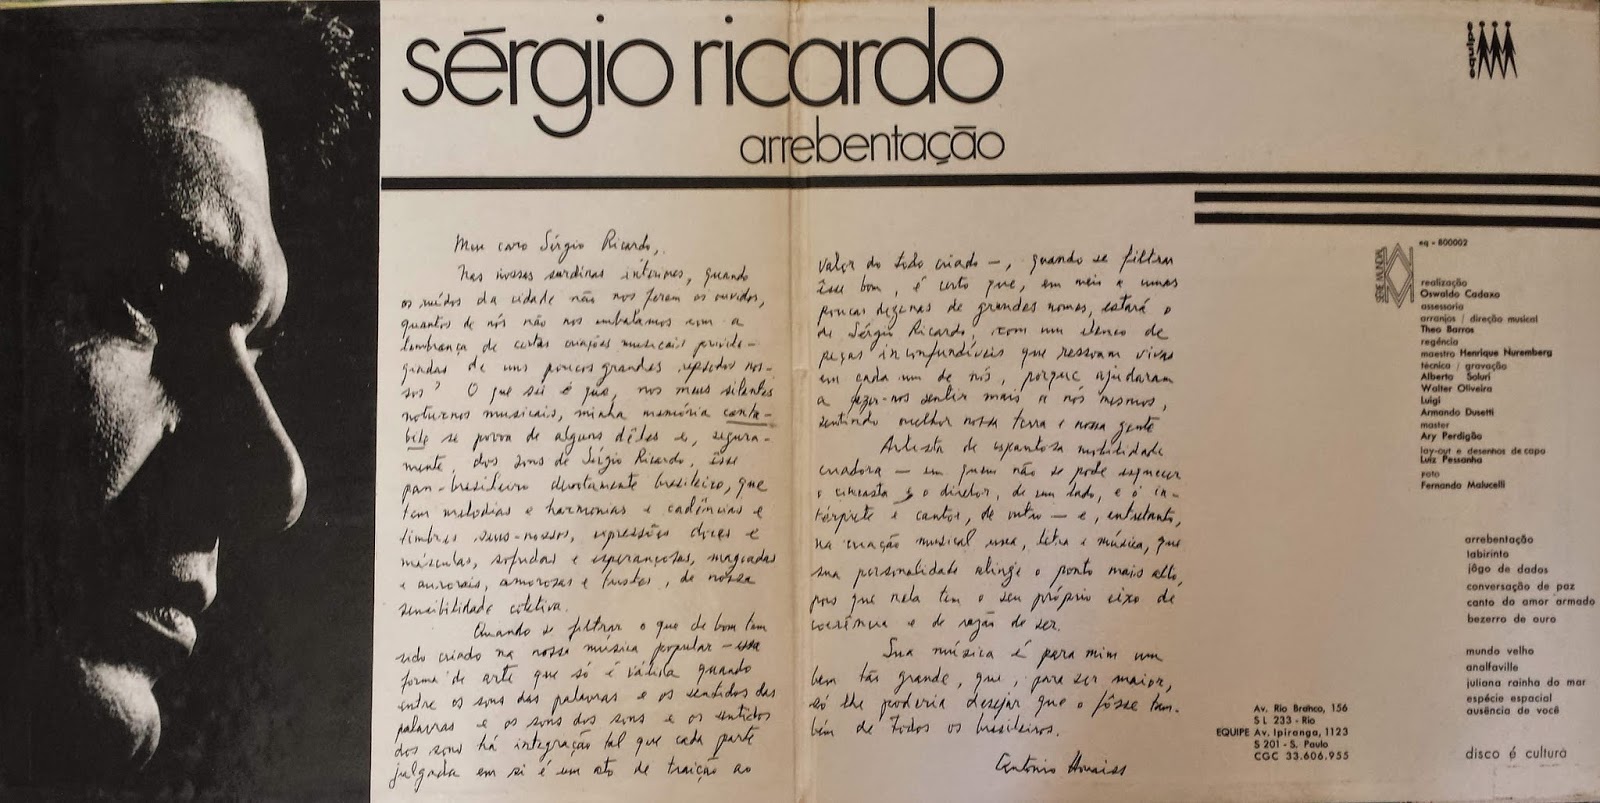 sérgio ricardo
arrebentação
equipe
Meu caro Sérgio Ricardo,
Nas nossas surdinas interiores, quando
os ruídos da cidade não nos ferem os ouvidos,
quantos de nós não nos embalamos com a
lembrança de certas criações musicais privile-
giadas de uns poucos grandes rapsodos nos-
sos? O que sei é que, nos meus silentes
noturnos musicais, minha memória canta-
bile se povoa de alguns dêles e, segura-
mente, dos sons de Sérgio Ricardo, êsse
pan-brasileiro durtamente brasileiro, que
tem melodias e harmonias e cadências e
timbres seus-nossos, expressões doces e
másculas, sofridas e esperançosas, magoadas
e aurorais, amorosas e tristes, de nossa
sensibilidade coletiva.
Quando se filtrar o que de bom tem
sido criado na nossa música popular — essa
forma de arte que só é válida quando
entre os sons das palavras e os sentidos das
palavras e os sons dos sons e os sentidos
dos sons há integração tal que cada parte
julgada em si é um ato de traição ao
valor do todo criado —, quando se filtrar
êsse bom, é certo que, em meio a umas
poucas dezenas de grandes nomes, estará o
de Sérgio Ricardo, com um elenco de
peças inconfundíveis que ressoam vivas
em cada um de nós, porque ajudaram
a fazer-nos sentir mais a nós mesmos,
sentindo melhor nossa terra e nossa gente
Artista de espantosa mobilidade
criadora — em quem não se pode esquecer
o cineasta e o diretor, de um lado, e o in-
térprete e cantor, de outro — e, entretanto,
na criação musical una, letra e música, que
sua personalidade atinge o ponto mais alto,
pois que nela tem o seu próprio eixo de
coerência e de razão de ser.
Sua música é para mim um
bem tão grande, que, para ser maior,
só lhe poderia desejar que o fôsse tam-
bém de todos os brasileiros.
Antônio Houaiss
SÉRIE MUNDIAL
eq - 800002
realização
Oswaldo Cadaxo
assessoria
arranjos / direção musical
Theo Barros
regência
maestro Henrique Nuremberg
técnica / gravação
Alberto Soluri
Walter Oliveira
Luigi
Armando Dusetti
master
Ary Perdigão
lay-out e desenhos de capa
Luiz Pessanha
foto
Fernanda Malucelli
arrebentação
labirinto
jôgo de dados
conversação de paz
canto do amor armado
bezerro de ouro
mundo velho
analfaville
juliana rainha do mar
espécie espacial
ausência de você
Av. Rio Branco, 156
S L 233 - Rio
EQUIPE Av. Ipiranga, 1123
S 201 - S. Paulo
CGC 33.606.955
disco é cultura